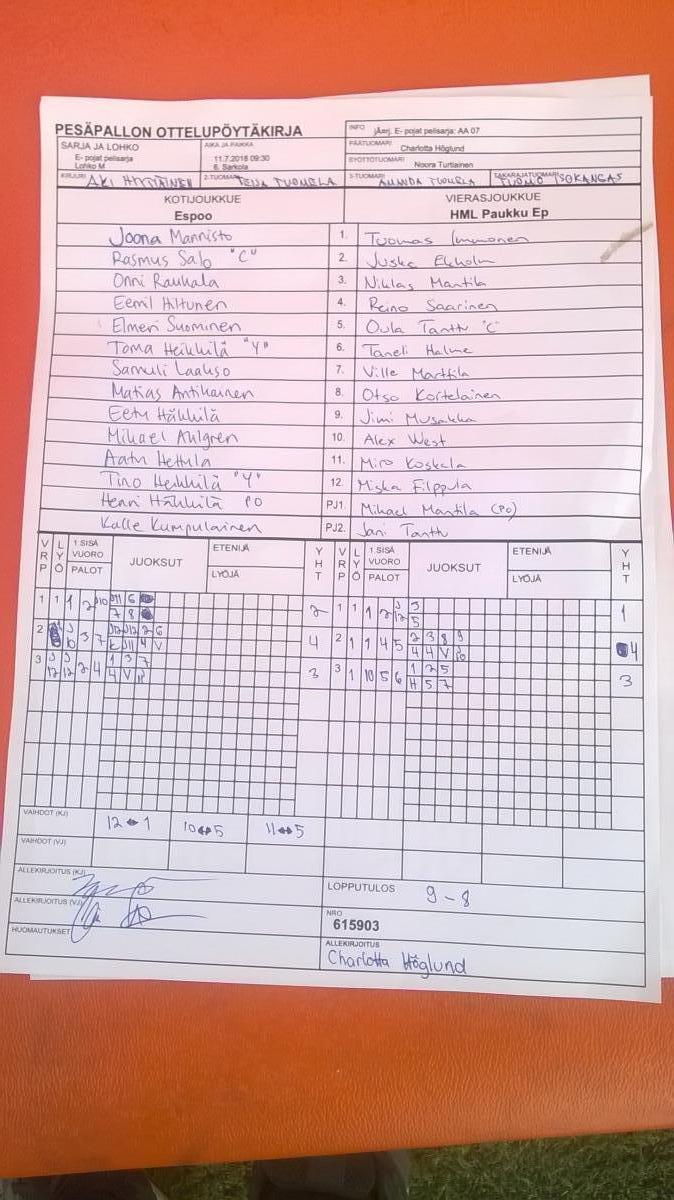 PESÄPALLON OTTELUPÖYTÄKIRJA
INFO jÄmj. E- pojat pelisarja: AA 07
SARJA JA LOHKO
E- pojat pelisarja
Lohko M
AIKA JA PAIKKA
11.7.2018 09:30
6. Sarkola
PÄÄTUOMARI Charlotta Höglund
SYÖTTÖTUOMARI Noora Turtiainen
KIRJURI AKI HYYTIÄINEN 2-TUOMARI TEIJA TUOMELA 3-TUOMARI AMANDA TUOMELA TAKARAJATUOMARI TUOMO ISOKANGAS
KOTIJOUKKUE VIERASJOUKKUE
Espoo HML Paukku Ep
Joona Männistö 1. Tuomas Immonen
Rasmus Salo "C" 2. Juska Ekholm
Onni Rauhala 3. Niklas Mantila
Eemil Hiltunen 4. Reino Saarinen
Elmeri Suominen 5. Oula Tanttu "C"
Toma Heikkilä "Y" 6. Taneli Halme
Samuli Laakso 7. Ville Marttila
Matias Antikainen 8. Otso Kortelainen
Eetu Häkkilä 9. Jimi Musakka
Mikael Ahlgren 10. Alex West
Aatu Hettula 11. Miro Koskela
Tino Heikkilä "Y" 12. Miska Filppula
Henri Häkkilä PO PJ1. Mikael Mantila (PO)
Kalle Kumpulainen PJ2. Jani Tanttu
VRP LYÖ 1.SISÄ VUORO PALOT JUOKSUT ETENIJÄ LYÖJÄ YHT VRP LYÖ 1.SISÄ VUORO PALOT JUOKSUT ETENIJÄ LYÖJÄ YHT
1 1 1 2 10 J11 6 2 1 1 1 2 J12 3 1
7 8 5
2 3 7 J12 J12 2 6 4 2 1 1 4 5 2 3 8 9 4
J11 4 V 4 4 V
3 J12 J12 2 4 1 3 7 3 3 1 10 5 6 1 2 5 3
4 V H 5 7
VAIHDOT (KJ) 12 ↔ 1 10 ↔ 5 11 ↔ 5
VAIHDOT (VJ)
ALLEKIRJOITUS (KJ)
LOPPUTULOS 9 - 8
ALLEKIRJOITUS (VJ)
NRO
615903
HUOMAUTUKSET
ALLEKIRJOITUS
Charlotta Höglund